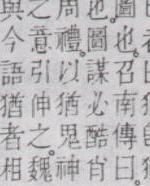 圖也召南傳曰
也圖謀必酷肖
周禮以猶鬼神
之意引伸之魏
與今語猶者相